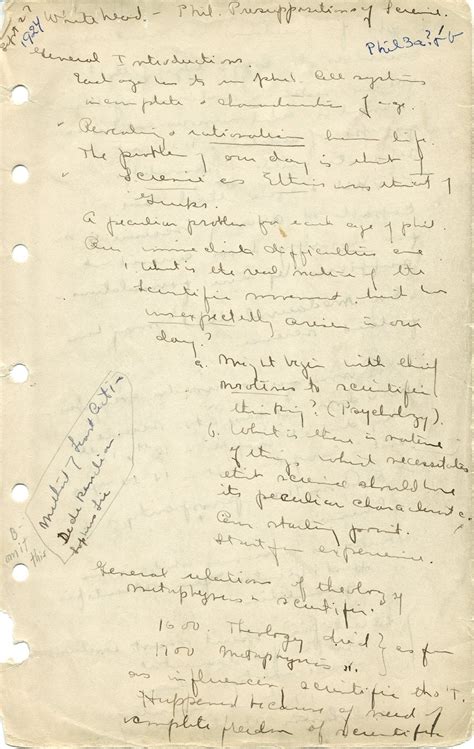 Sept 27
1924
Whitehead. - Phil. Presuppositions of Science.
Phil 3a?
General Introductions.
Each age has its own phil. All systems
incomplete & characteristic of age.
Revealing & rationalism human life.
The problem of our day is that of
Science as Ethics was that of
Greeks.
A peculiar problem for each age of phil.
Our immediate difficulties are
1. What is the real nature of the
scientific movement that has
unexpectedly arisen in our
day?
a. Might begin with chief
motives to scientific
thinking? (Psychology).
b. What is there in nature
of things which necessitates
that science should have
its peculiar character &c.
Our starting point.
Start from experience.
Method of
omit
this
General relations of theology
metaphysics & scientific.
1600 Theology died as far
1700 Metaphysics "
as influencing scientific tho't.
Happened because of need of
complete freedom of scientific